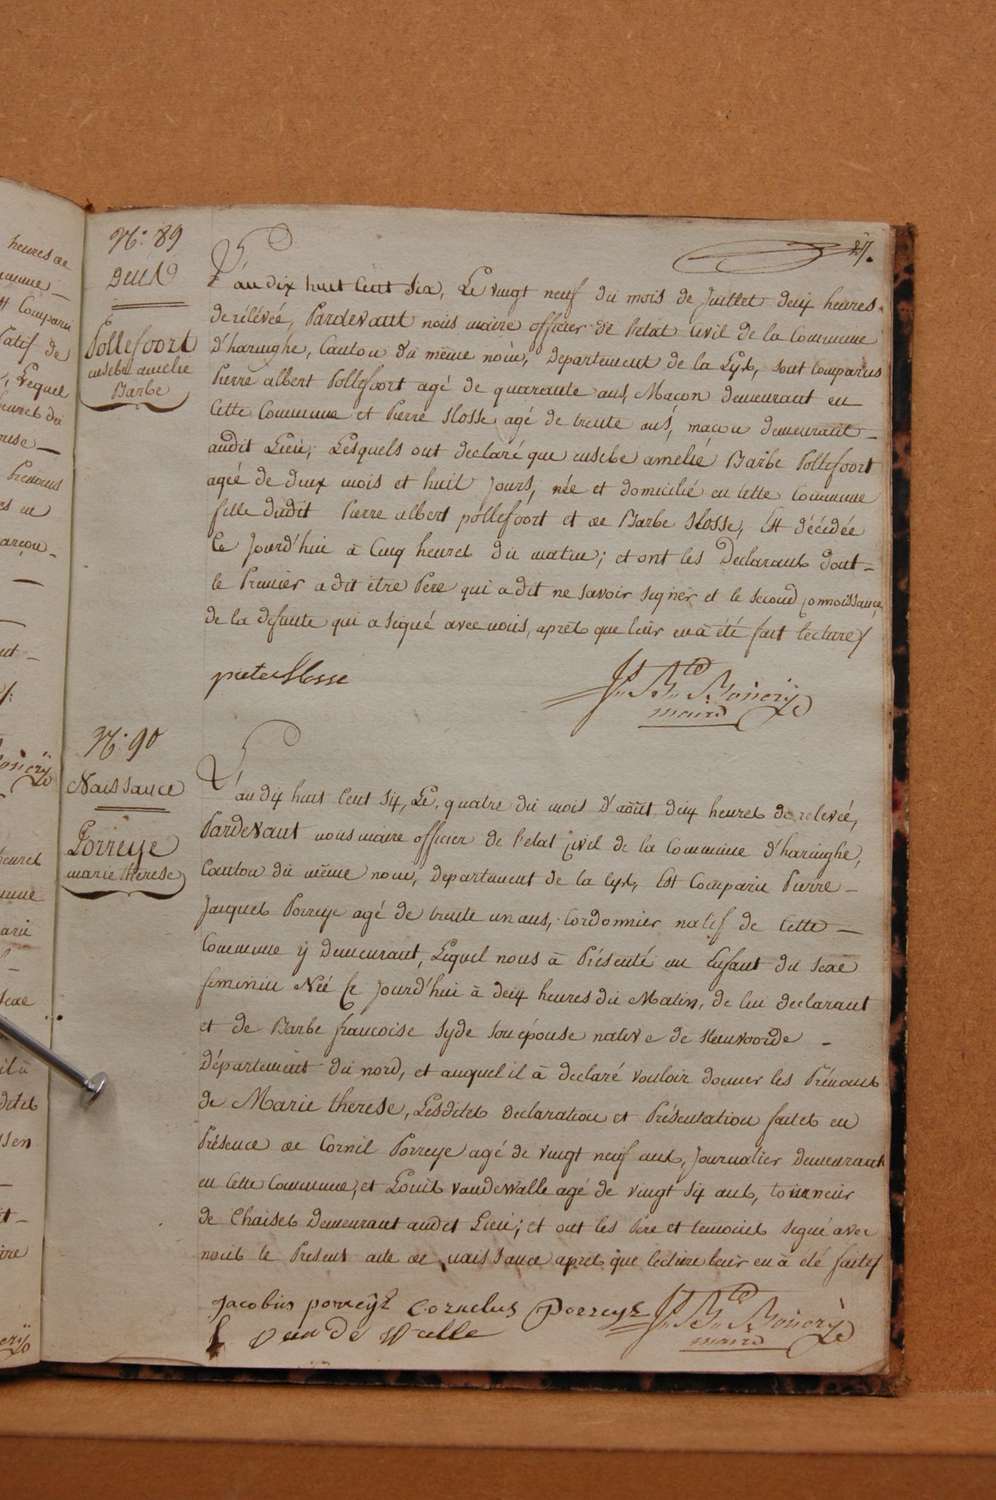 heures de
Compari
natif de
Lequel
Prenoms
27.
N.° 89
Deces
Pollefoort
eusebe amelie
Barbe
L'an dix huit Cent Six, Le vingt neuf du mois de Juillet deux heures
de rélévéé, Pardevant nous maire officier de l'etat Civil de la Commune
d'haringhe, Canton du même nom, département de la Lys, sont comparus
Pierre albert Pollefoort agé de quarante ans, Macon demeurant en
Cette Commune et Pierre Slosse agé de trente ans, maçon demeurant
audit Lieu, Lesquels ont declaré que eusebe amelie Barbe Pollefoort
agéé de deux mois et huit Jours, née et domicilié en Cette Commune
fille dudit Pierre albert pollefoort et de Barbe Slosse, Est décédée
Ce Jourd'hui à Cinq heures du matin; et ont les Declarants dont
le Premier a dit être Pere qui a dit ne savoir signer et le second Connoissance
de la defunte qui a signé avec nous, aprés que leur en à été fait lecture
pieter Slosse
maire
N.° 90
Naissance
Porreye
marie therese
L'an dix huit Cent Six, Le quatre du mois d'août deux heures de relevéé,
Pardevant nous maire officier de l'etat Civil de la Commune d'haringhe,
Canton du même nom, département de la Lys, Est Comparu Pierre
Jacques Porreye agé de trente un ans, Cordonnier natif de Cette
Commune ÿ demeurant, Lequel nous à Présenté un Enfant du sexe
feminin Néé Ce Jourd'hui à deux heures du Matin, de lui declarant
et de Barbe francoise Syde son épouse native de Steenvoorde
Département du nord, et auquel il à declaré vouloir donner les Prénoms
de Marie therese, Lesdites declaration et Présentation faites en
Présence de Cornil Porreye agé de vingt neuf ans, Journalier demeurant
en Cette Commune, et Louis vandewalle agé de vingt six ans, tourneur
de Chaises demeurant audit Lieu; et ont les Pere et temoins signé avec
nous le Present acte de naissance aprés que lecture leur en à été faites
Jacobus porreÿe Cornelus Porreye
L Van de Walle
maire